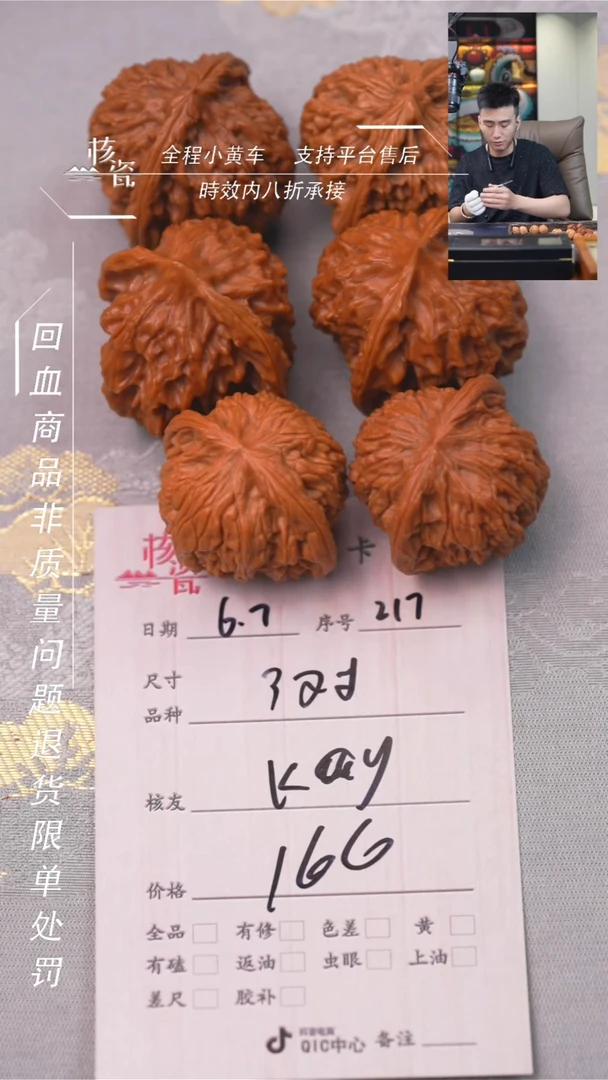 核瓷
全程小黄车 支持平台售后
時效内八折承接
回血商品非质量问题退货限单处罚
核瓷 卡
日期 6.7 序号 217
尺寸
品种 3对
核友 Kay
价格 166
全品 有修 色差 黄
有磕 返油 虫眼 上油
差尺 胶补
抖音电商
QIC中心 备注